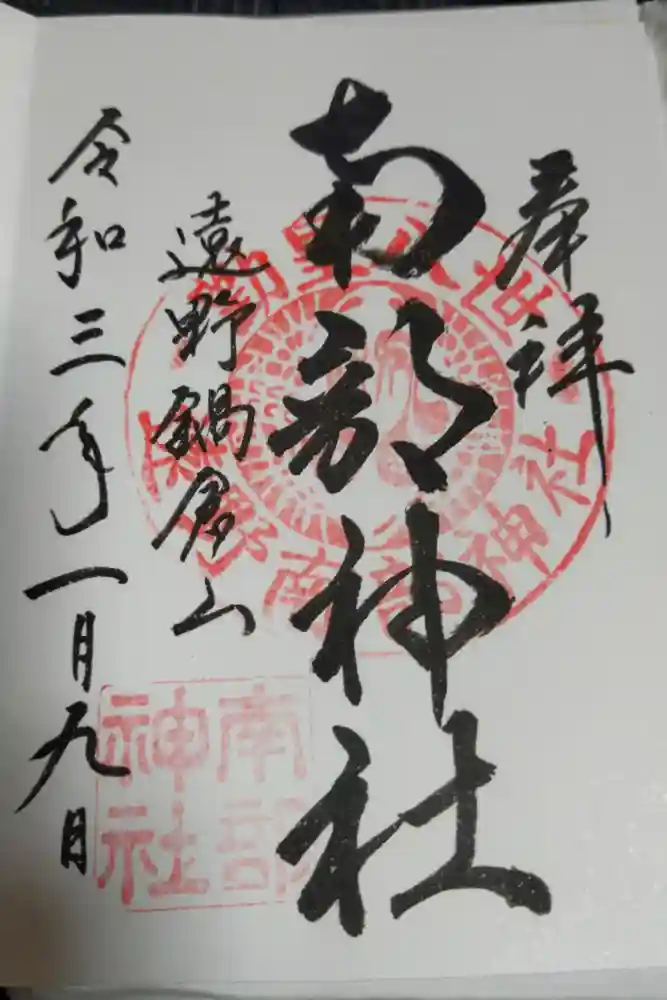 奉拝
南部神社
遠野鍋倉山
令和三年一月九日
南部神社
南部神社